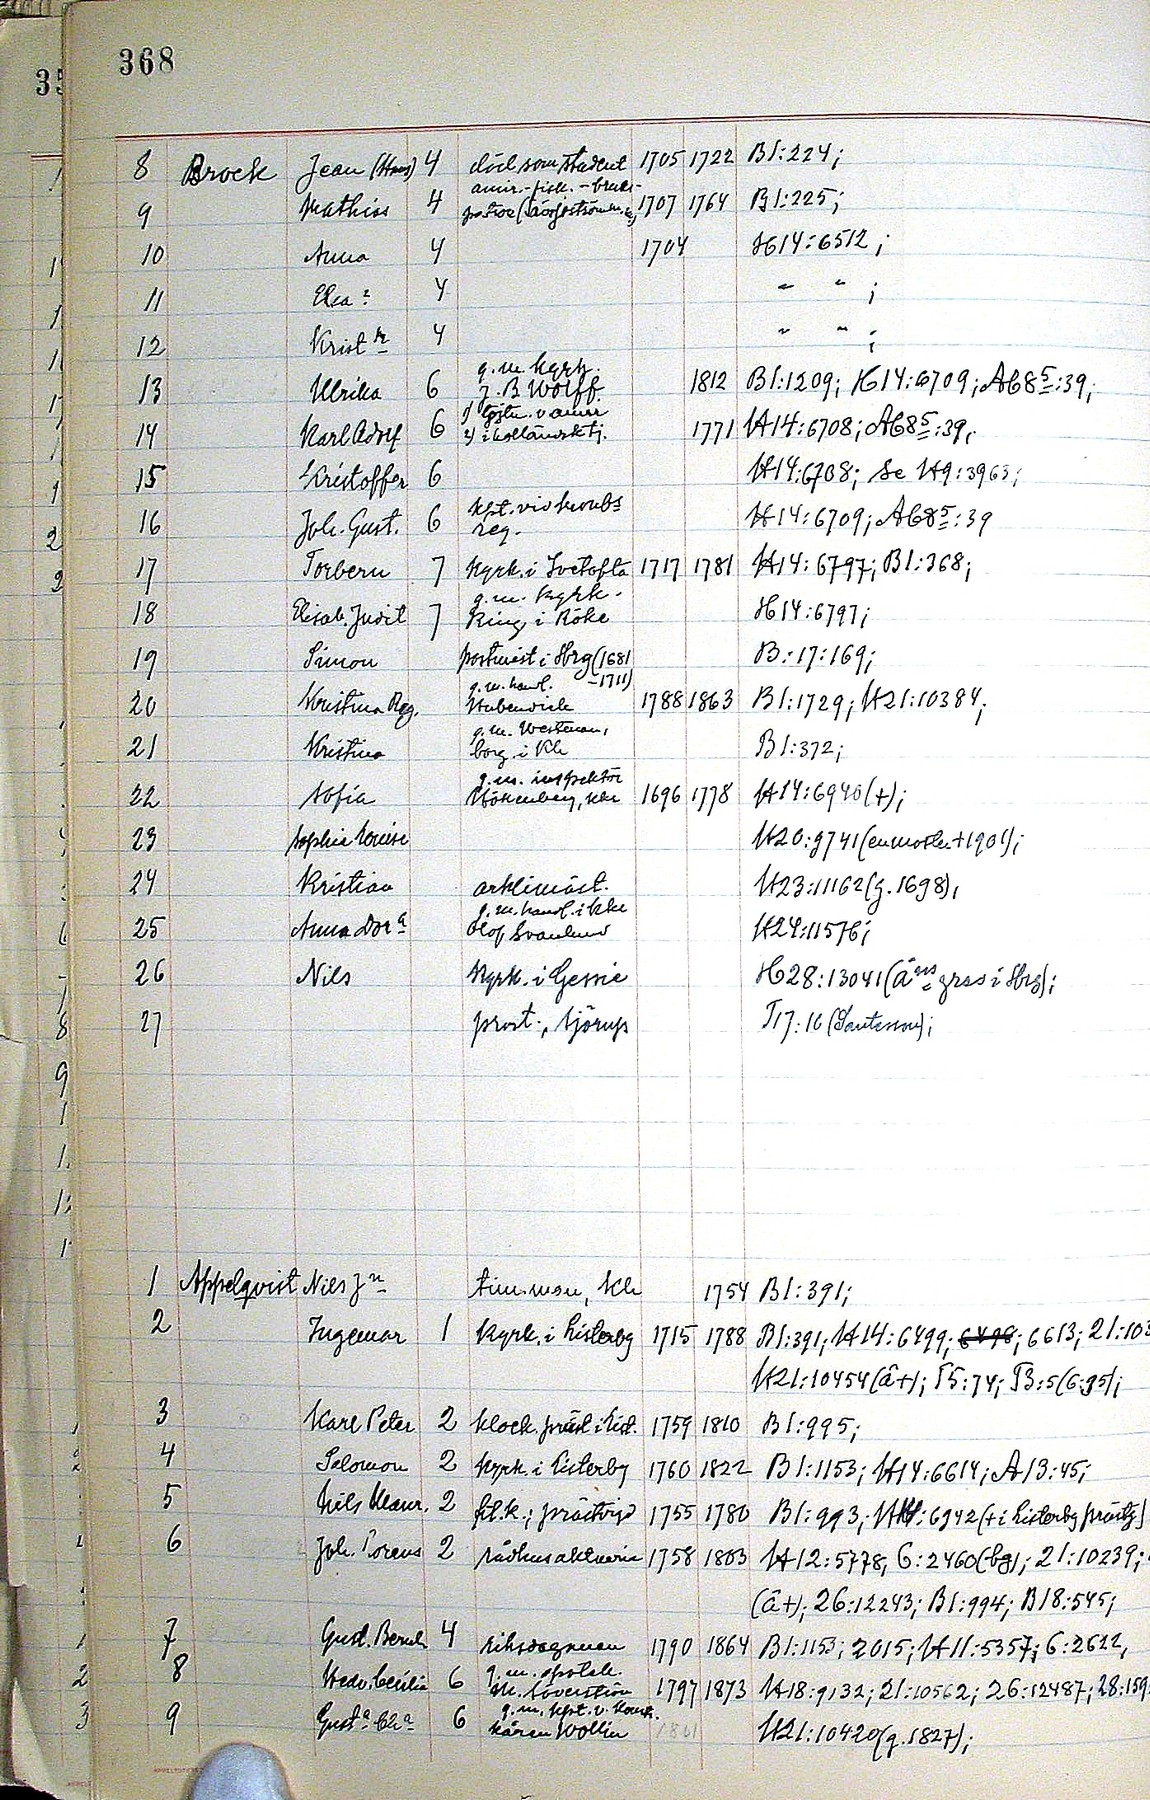 368
8 Brock Jean (Hans) 4 död som student 1705 1722 B1:224;
9 Mathias 4 amir.-fisk.-bruks- 1707 1764 B1:225;
10 Anna 4 1704 H14:6512;
11 Elsa? 4 " " ;
12 Krist 4 " " ;
13 Ulrika 6 g.m. kyrkh. J. B Wolff. 1812 B1:1209; H14:6709; Ab85:39;
14 Karl Adolf 6 1) löjtn. v amir 2) i holländsk tj. 1771 H14:6708; Ab85:39;
15 Kristoffer 6 H14:6708; se H9:3963;
16 Joh. Gust. 6 kpt. vid kronobs reg. H14:6709; Ab85:39
17 Torbern 7 kyrk. i Ivetofta 1717 1781 H14:6797; B1:368;
18 Elisab. Judit 7 g.m. kyrk. Ring i Röke H14:6797;
19 Simon postmäst i Hbg (1681 -1711) B:17:169;
20 Kristina Reg. g.m. handl. 1788 1863 B1:1729; H21:10384;
21 Kristina g.m. Westman, borg. i Kh B1:372;
22 Sofia g.m. inspektör 1696 1778 H14:6940(+);
23 Sophia Lovisa H20:9741(en +1901);
24 Kristian arklimäst. H23:11162(g.1698);
25 Anna Dor:a g.m. handl. i Olof Svanlund H24:11576;
26 Nils Kyrk. i Gessie H28:13041( i Hbg);
27 prost, Sjörup T17:16 (Santesson);
1 Appelqvist Nils J:n timman, Kh 1754 B1:391;
2 Ingemar 1 Kyrk. i Listerby 1715 1788 B1:391; H14:6499; 6498; 6613; 21:103
H21:10454(å+); T5:74; T3:5(6:95);
3 Karl Peter 2 klock. präst i List. 1759 1810 B1:995;
4 Salomon 2 kyrk. i Listerby 1760 1822 B1:1153; H14:6614; A13:45;
5 Nils 2 prästvigd 1755 1780 B1:993; H14:6942(+ i Listerby prästg)
6 Joh. Lorens 2 rådhusaktuarie 1758 1803 H12:5778, 6:2460(bg); 21:10239;
(å+); 26:12243; B1:994; B18:545;
7 Gust. Bernh. 4 riksdagsman 1790 1864 B1:1153; 2015; H11:5357; 6:2622,
8 Hedv. Cecilia 6 g.m. apotek. M. Söderström 1797 1873 H18:9132; 21:10562; 26:12487; 28:159
9 Gust:a 6 g.m. kpt. v. Wollin 1801 H21:10420(g.1827);